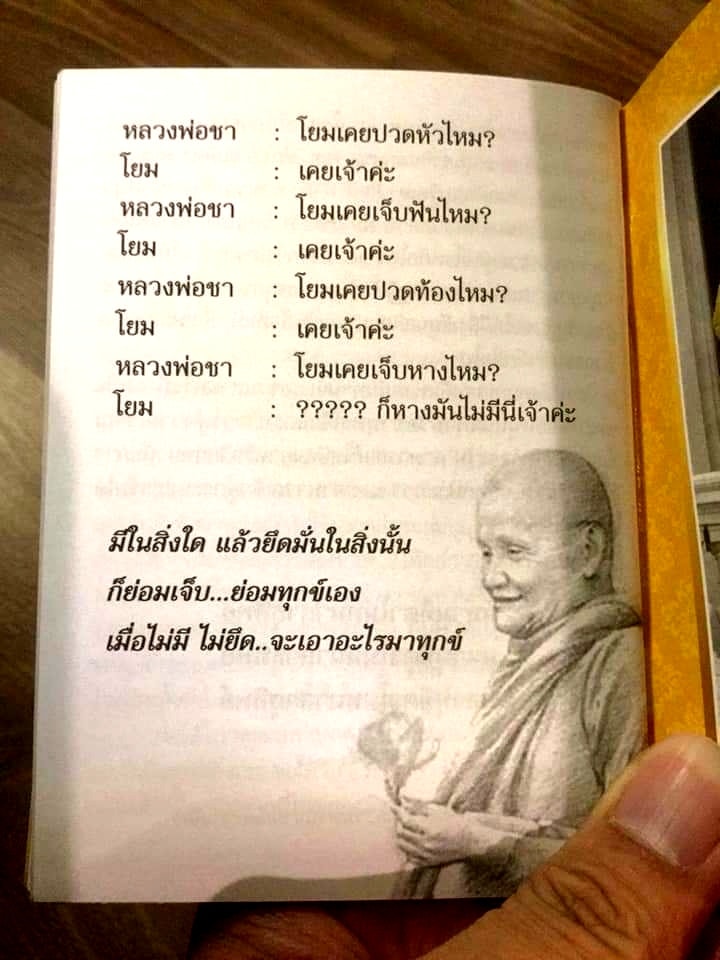 หลวงพ่อชา : โยมเคยปวดหัวไหม?
โยม : เคยเจ้าค่ะ
หลวงพ่อชา : โยมเคยเจ็บฟันไหม?
โยม : เคยเจ้าค่ะ
หลวงพ่อชา : โยมเคยปวดท้องไหม?
โยม : เคยเจ้าค่ะ
หลวงพ่อชา : โยมเคยเจ็บหางไหม?
โยม : ????? ก็หางมันไม่มีนี่เจ้าค่ะ
มีในสิ่งใด แล้วยึดมั่นในสิ่งนั้น
ก็ย่อมเจ็บ...ย่อมทุกข์เอง
เมื่อไม่มี ไม่ยึด..จะเอาอะไรมาทุกข์